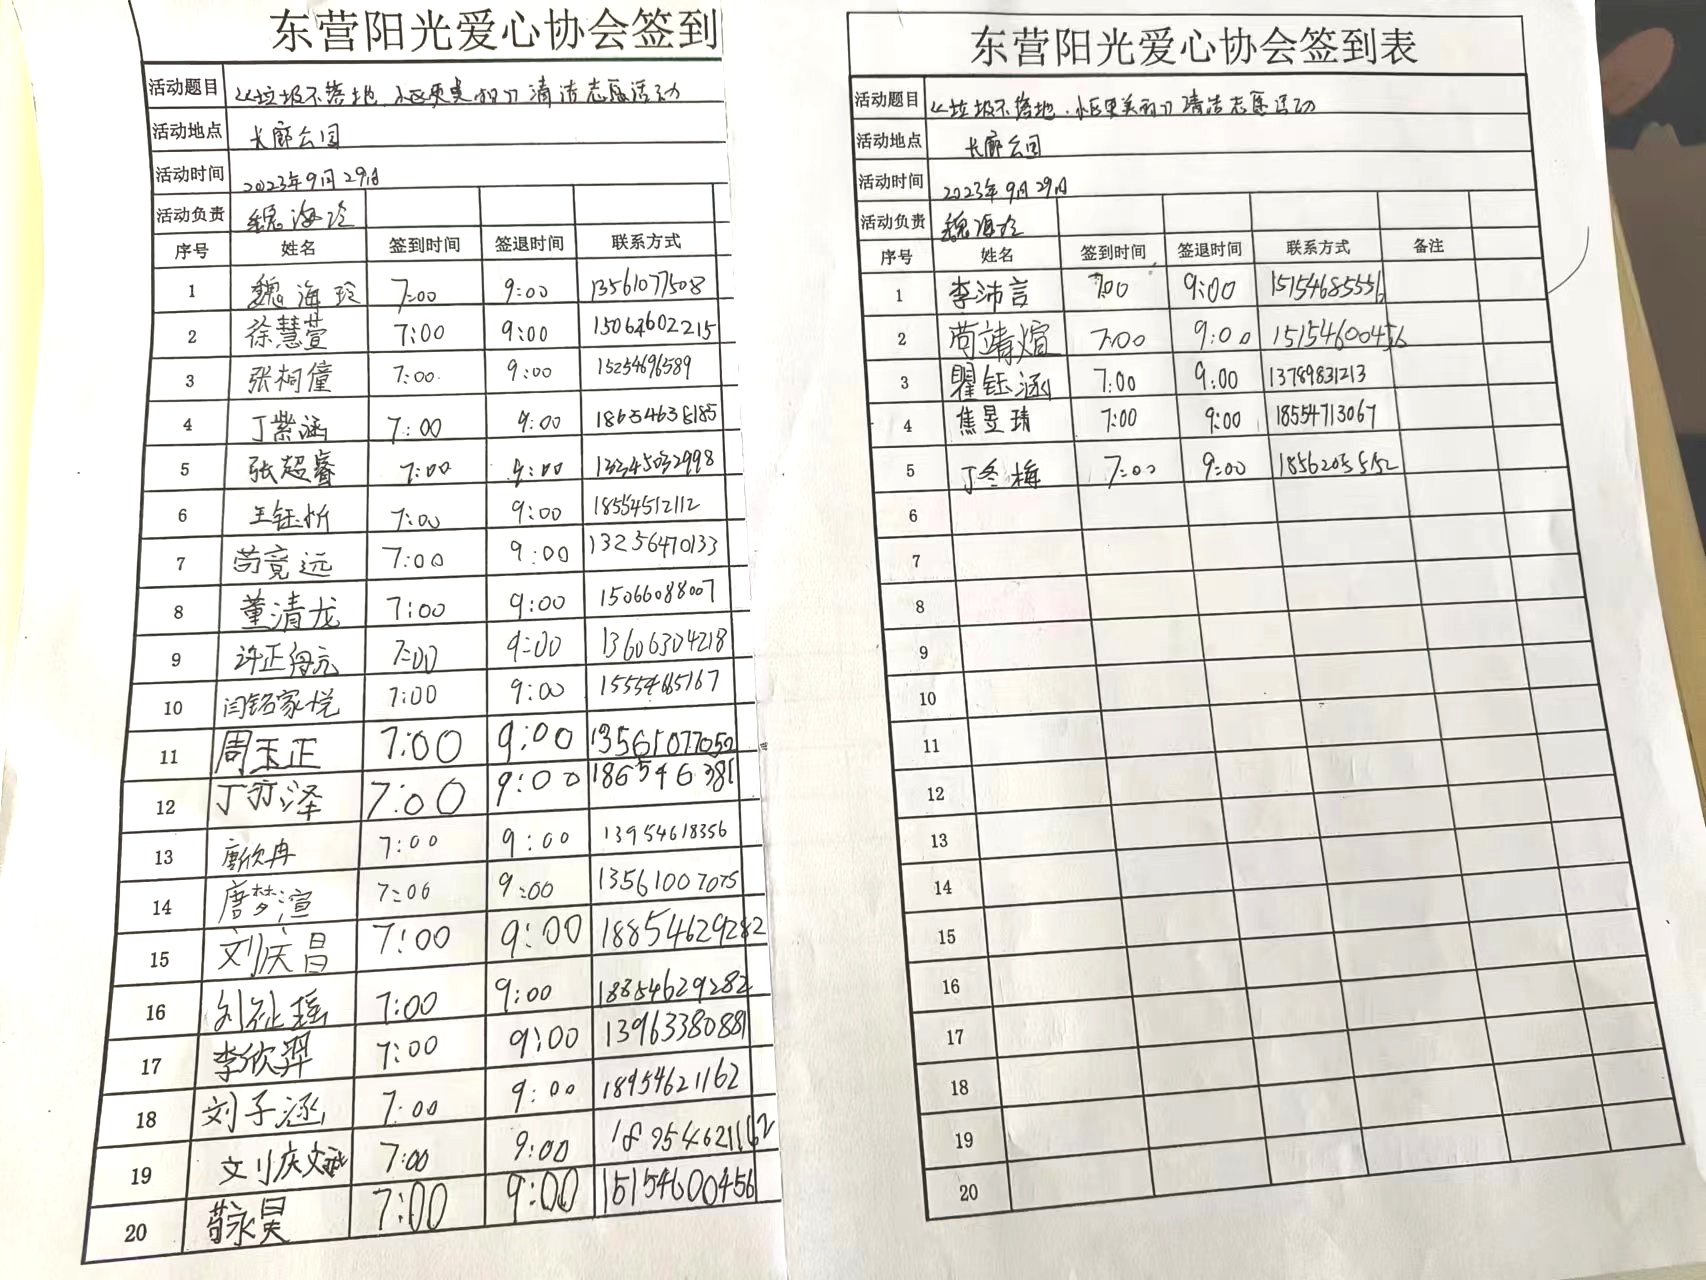 东营阳光爱心协会签到
活动题目 《垃圾不落地,小区更美丽》清洁志愿活动
活动地点 长廊公园
活动时间 2023年9月29日
活动负责 魏海玲
序号 姓名 签到时间 签退时间 联系方式
1 魏海玲 7:00 9:00 13561077508
2 徐慧萱 7:00 9:00 15064602215
3 张桐僮 7:00 9:00 15254696589
4 丁紫涵 7:00 9:00 18654638185
5 张超睿 7:00 9:00 13345032998
6 王钰忻 7:00 9:00 18554512112
7 苟竟远 7:00 9:00 13256470133
8 董清龙 7:00 9:00 15066088007
9 许正海元 7:00 9:00 13606304218
10 闫铭家悦 7:00 9:00 15554665167
11 周玉正 7:00 9:00 13561077052
12 丁亦泽 7:00 9:00 186546381
13 唐欣冉 7:00 9:00 13954618356
14 唐梦渲 7:00 9:00 13561007075
15 刘庆昌 7:00 9:00 18854629282
16 刘征瑶 7:00 9:00 18854629282
17 李欣羿 7:00 9:00 13963380881
18 刘子涵 7:00 9:00 18954621162
19 刘庆斌 7:00 9:00 18954621162
20 苟永昊 7:00 9:00 15154600456
东营阳光爱心协会签到表
活动题目 《垃圾不落地,小区更美丽》清洁志愿活动
活动地点 长廊公园
活动时间 2023年9月29日
活动负责 魏海玲
序号 姓名 签到时间 签退时间 联系方式 备注
1 李沛言 7:00 9:00 15154685556
2 苟靖煊 7:00 9:00 15154600456
3 瞿钰涵 7:00 9:00 13789831213
4 焦昱琦 7:00 9:00 18554713067
5 丁冬梅 7:00 9:00 18562035552
6
7
8
9
10
11
12
13
14
15
16
17
18
19
20